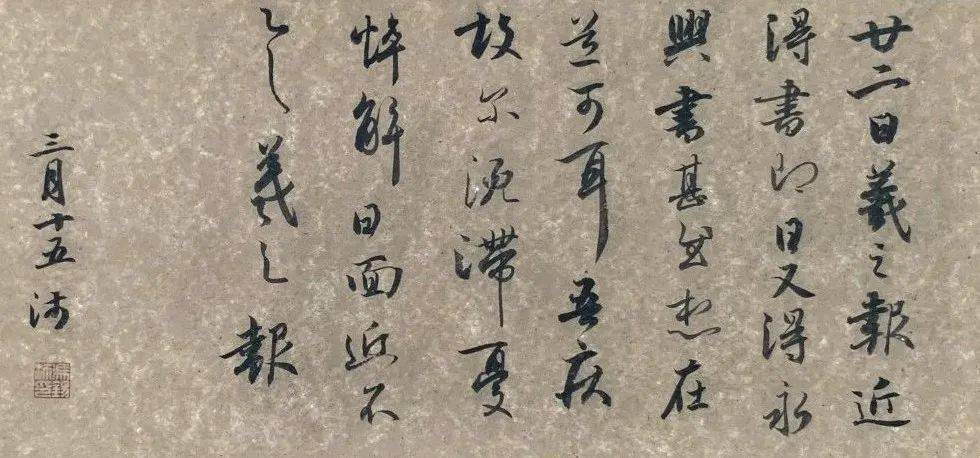 廿二日羲之報近
得書即日又得永
興書甚慰想在
道可耳吾疾
故尔沉滯憂
悴解日面近不
一一羲之報
三月十五